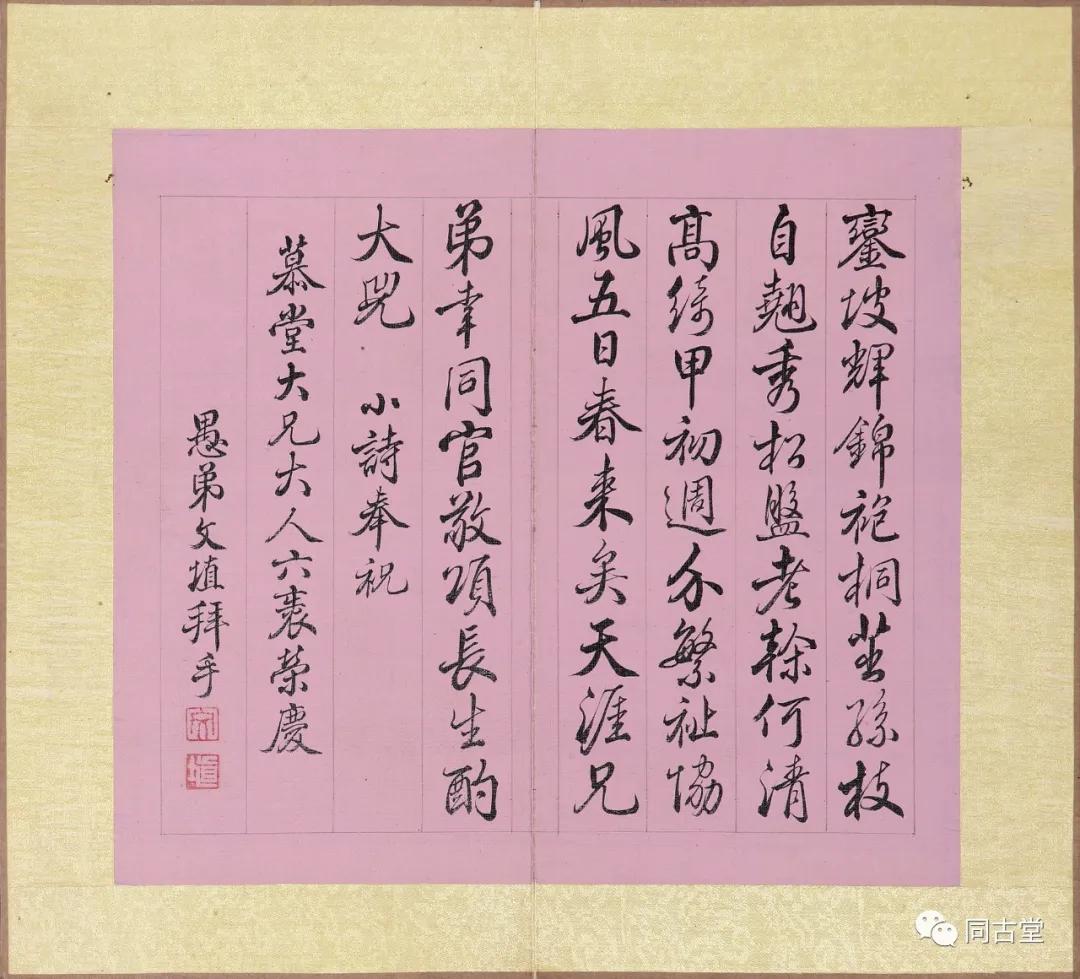 鑾坡輝錦袍桐茁孫枝
自翹秀松盤老榦何清
高綺甲初週介繁祉協
風五日春来矣天涯兄
弟幸同官敬頌長生酌
大兕 小詩奉祝
慕堂大兄大人六袠荣慶
愚弟文埴拜手
文
埴
同古堂